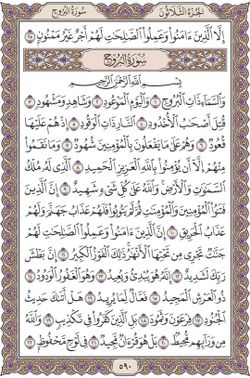 سُورَةُ البُرُوجِ الجُزْءُ الثَّلَاثُونَ
إِلَّا الَّذِينَ ءَامَنُوا وَعَمِلُوا الصَّالِحَاتِ لَهُمْ أَجْرٌ غَيْرُ مَمْنُونٍ ٢٥
سُورَةُ البُرُوجِ
بِسْمِ اللَّهِ الرَّحْمَٰنِ الرَّحِيمِ
وَالسَّمَاءِ ذَاتِ الْبُرُوجِ ١ وَالْيَوْمِ الْمَوْعُودِ ٢ وَشَاهِدٍ وَمَشْهُودٍ ٣
قُتِلَ أَصْحَابُ الْأُخْدُودِ ٤ النَّارِ ذَاتِ الْوَقُودِ ٥ إِذْ هُمْ عَلَيْهَا
قُعُودٌ ٦ وَهُمْ عَلَىٰ مَا يَفْعَلُونَ بِالْمُؤْمِنِينَ شُهُودٌ ٧ وَمَا نَقَمُوا
مِنْهُمْ إِلَّا أَن يُؤْمِنُوا بِاللَّهِ الْعَزِيزِ الْحَمِيدِ ٨ الَّذِي لَهُ مُلْكُ
السَّمَاوَاتِ وَالْأَرْضِ وَاللَّهُ عَلَىٰ كُلِّ شَيْءٍ شَهِيدٌ ٩ إِنَّ الَّذِينَ
فَتَنُوا الْمُؤْمِنِينَ وَالْمُؤْمِنَاتِ ثُمَّ لَمْ يَتُوبُوا فَلَهُمْ عَذَابُ جَهَنَّمَ وَلَهُمْ
عَذَابُ الْحَرِيقِ ١٠ إِنَّ الَّذِينَ ءَامَنُوا وَعَمِلُوا الصَّالِحَاتِ لَهُمْ
جَنَّاتٌ تَجْرِي مِن تَحْتِهَا الْأَنْهَارُ ذَٰلِكَ الْفَوْزُ الْكَبِيرُ ١١ إِنَّ بَطْشَ
رَبِّكَ لَشَدِيدٌ ١٢ إِنَّهُ هُوَ يُبْدِئُ وَيُعِيدُ ١٣ وَهُوَ الْغَفُورُ الْوَدُودُ ١٤
ذُو الْعَرْشِ الْمَجِيدُ ١٥ فَعَّالٌ لِّمَا يُرِيدُ ١٦ هَلْ أَتَاكَ حَدِيثُ
الْجُنُودِ ١٧ فِرْعَوْنَ وَثَمُودَ ١٨ بَلِ الَّذِينَ كَفَرُوا فِي تَكْذِيبٍ ١٩ وَاللَّهُ
مِن وَرَائِهِم مُّحِيطٌ ٢٠ بَلْ هُوَ قُرْءَانٌ مَّجِيدٌ ٢١ فِي لَوْحٍ مَّحْفُوظٍ ٢٢
٥٩٠